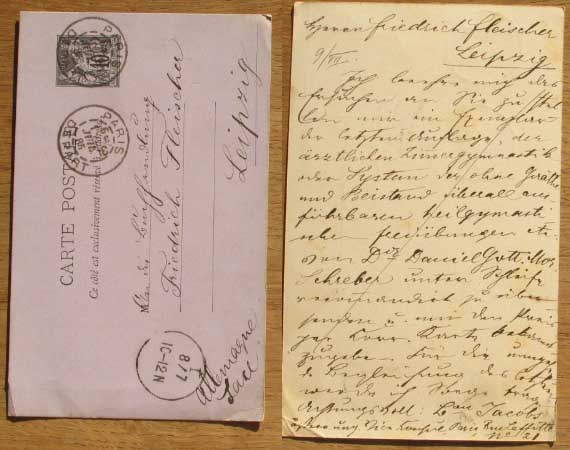 CARTE POSTALE
Ce côté est exclusivement réservé à l'adresse
PARIS
DEPART
PARIS
DEPART
10
An die Buchhandlung
Friedrich Fleischer
Leipzig
Allemagne
8/7
10-12N
Herrn Friedrich Fleischer
Leipzig
9/VII.
Ich beehre mich das
Ersuchen an Sie zu stel
len mir ein Exemplar
der letzten Auflage, der
ärztlichen Zimmergymnastik
oder System der ohne Geräthe
und Beistand überall aus
führbaren heilgymnasti
schen Freiübungen etc.
von Dr Daniel Gott. Mor.
Schreber unter Schleife
zu über
senden u. mir den Preis
per Corr. Karte bekannt
zugeben. Für die
Begleichung des
werde ich Sorge tragen
Achtungsvoll: Jacobs
Vice Consul Paris Rue Laffitte
No 21